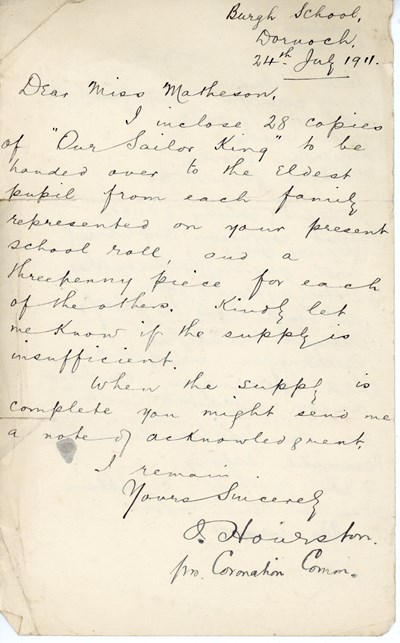 Burgh School,
Dornoch,
24th July 1911.
Dear Miss Matheson,
I inclose 28 copies
of "Our Sailor King" to be
handed over to the Eldest
pupil from each family
represented on your present
school roll, and a
threepenny piece for each
of the others. Kindly let
me know if the supply is
insufficient.
When the supply is
complete you might send me
a note of acknowledgment.
I remain
Yours Sincerely
J. Hourston.
pro. Coronation Comm.